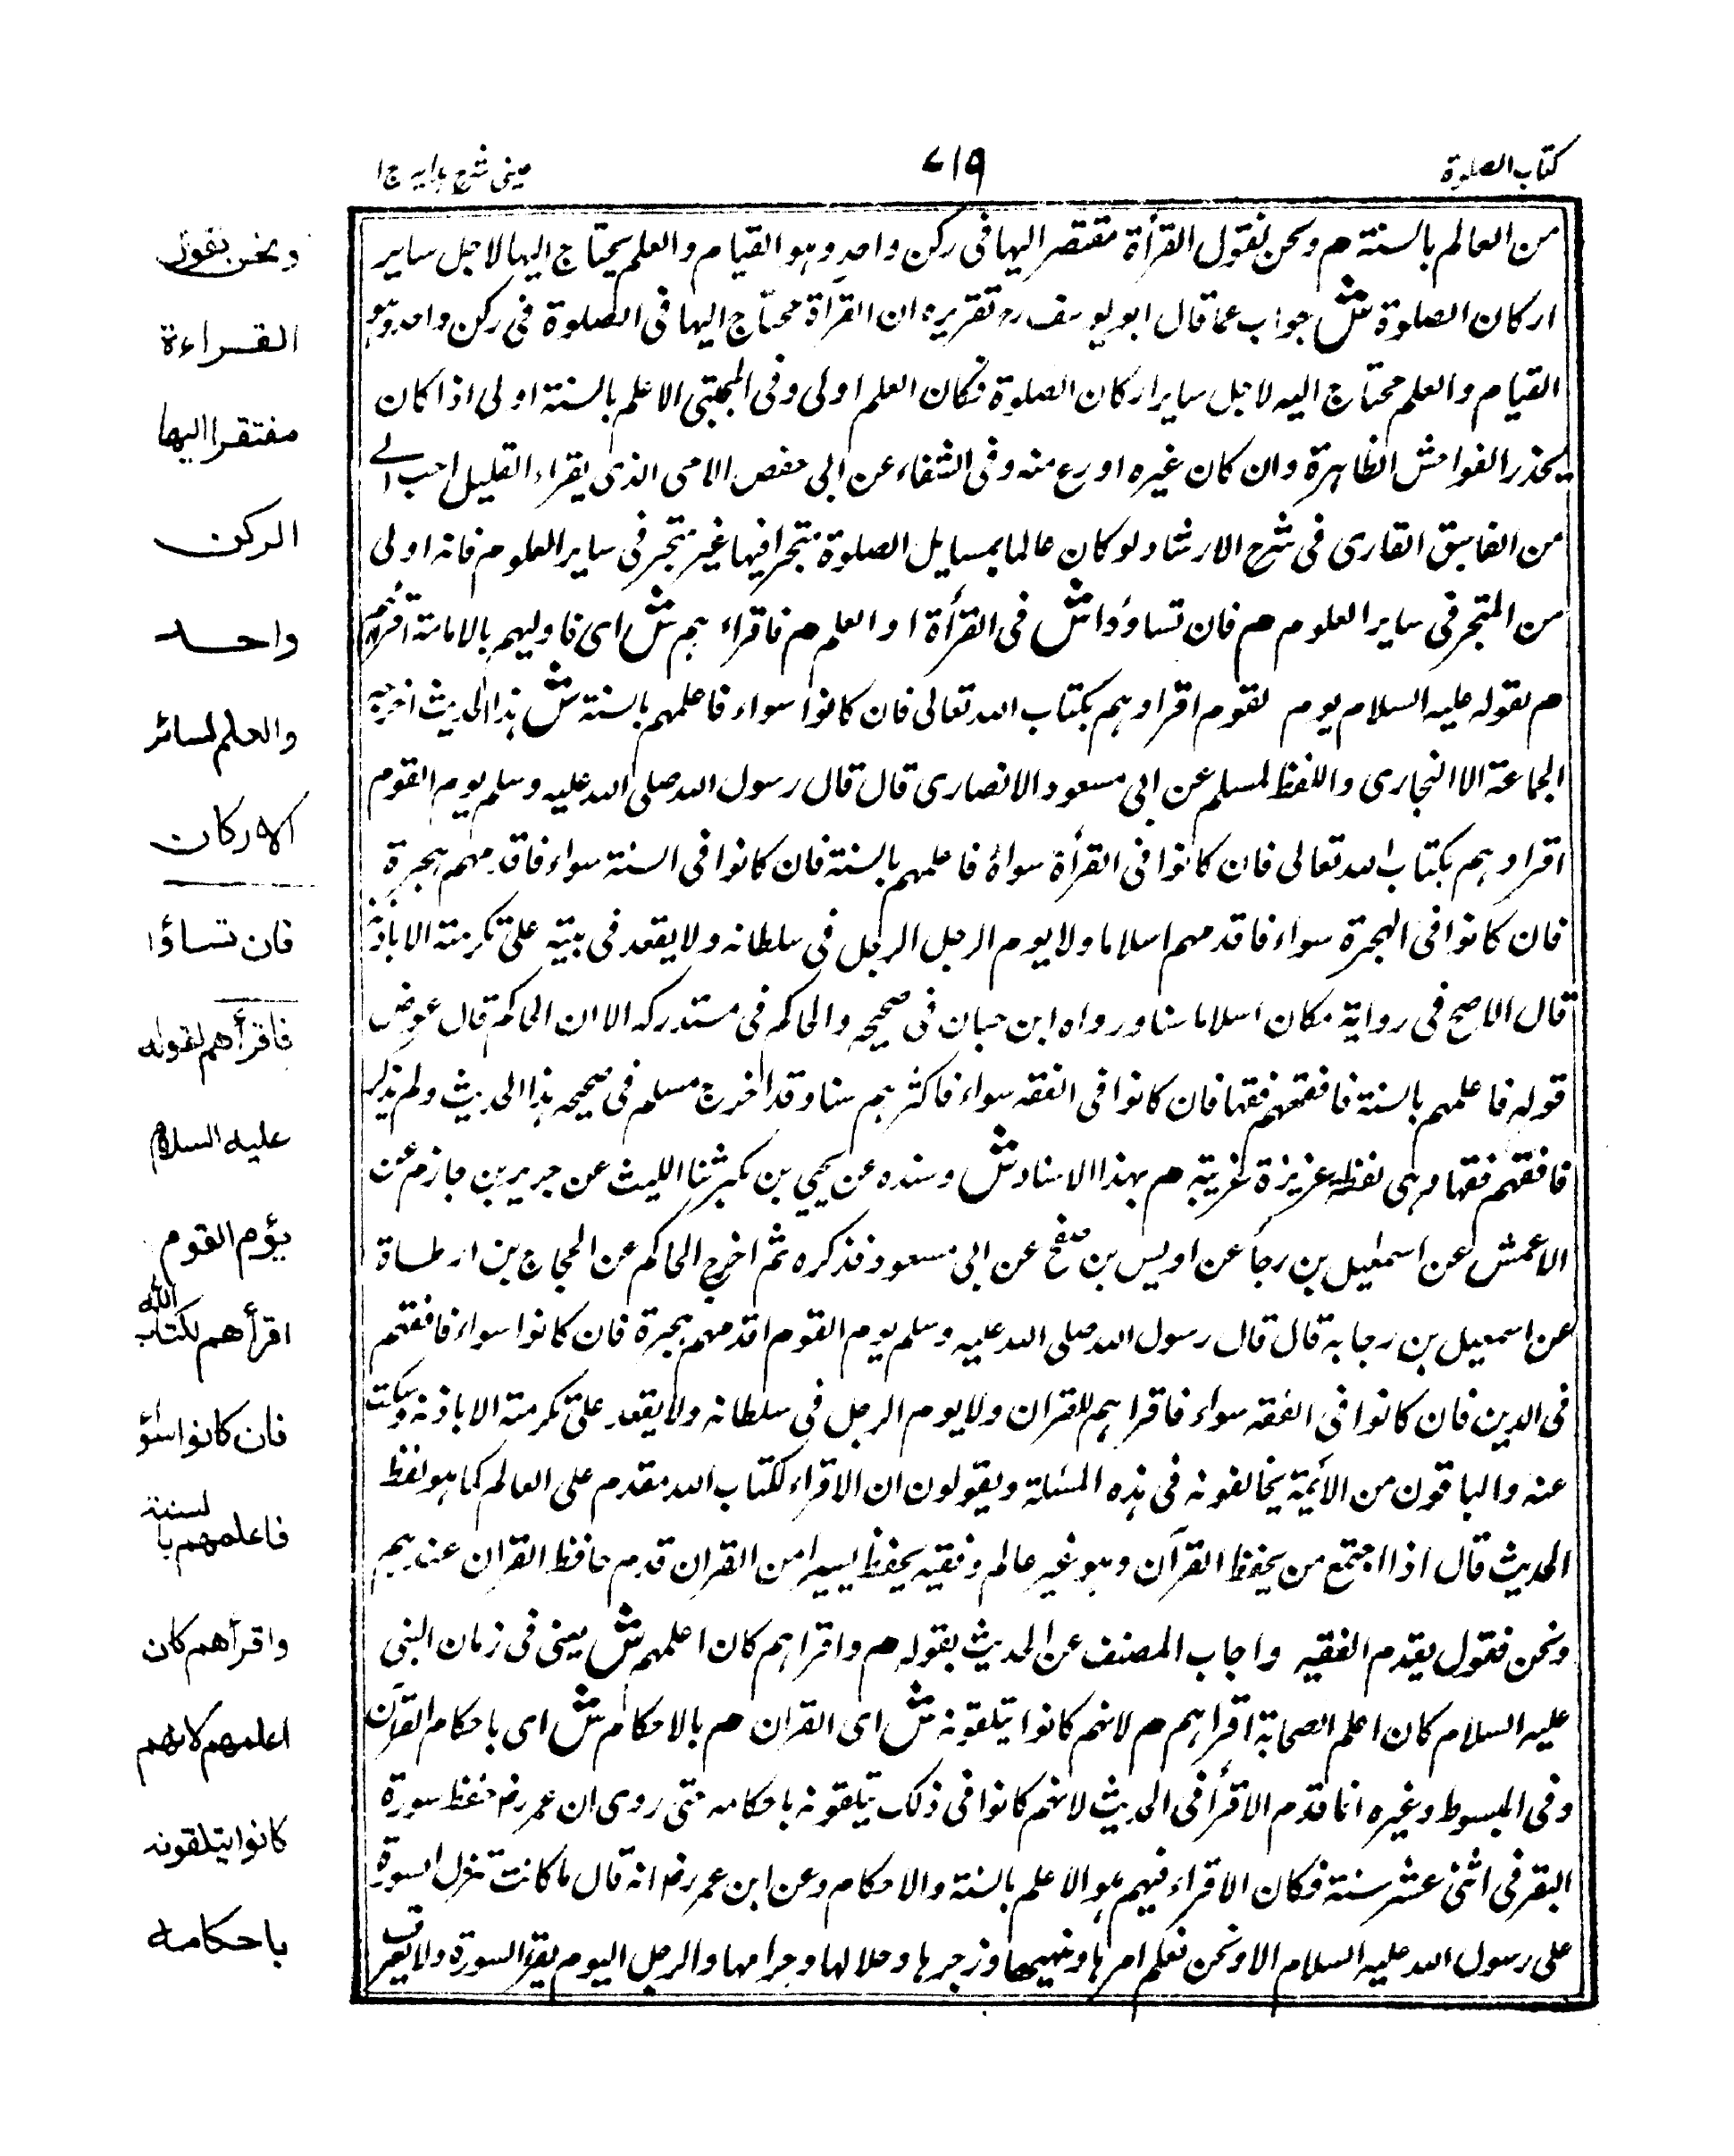 كتاب الصلوة
۷۱۹
عينى شرح هدايه ج ا
من العالم بالسنة هم ونحن نقول القرأة مفتقر اليها فى ركن واحد وهو القيام والعلم يحتاج اليها لاجل ساير
اركان الصلوة ش جواب عما قال ابو يوسف رح تقريره ان القرأة محتاج اليها فى الصلوة فى ركن واحد وهو
القيام والعلم محتاج اليه لاجل ساير اركان الصلوة فكان العلم اولى وفى المجتبى الاعلم بالسنة اولى اذا كان
يحذر الفواحش الظاهرة وان كان غيره اورع منه وفى الشفاء عن ابى حفص الامى الذى يقراء القليل احب الى
من الفاسق القارى فى شرح الارشاد لو كان عالما بمسايل الصلوة متبحرا فيها غير متبحر فى ساير العلوم فانه اولى
من المتبحر فى ساير العلوم هم فان تساوُوا ش فى القرأة او العلم هم فاقراء هم ش اى فاوليهم بالامامة اقرأهم
هم لقوله عليه السلام يوم لقوم اقراوهم بكتاب الله تعالى فان كانوا سواء فاعلمهم بالسنة ش هذا الحديث اخرجه
الجماعة الا البخارى واللفظ لمسلم عن ابى مسعود الانصارى قال قال رسول الله صلى الله عليه وسلم يوم القوم
اقراوهم بكتاب الله تعالى فان كانوا فى القرأة سواءً فاعلمهم بالسنة فان كانوا فى السنة سواء فاقدمهم هجرة
فان كانوا فى الهجرة سواء فاقدمهم اسلاما ولا يوم الرجل الرجل فى سلطانه ولا يقعد فى بيته على تكرمته الا باذنه
قال الاصح فى رواية مكان اسلاما سنا ورواه ابن حبان فى صحيحه والحاكم فى مستدركه الا ان الحاكم قال عوض
قوله فاعلمهم بالسنة فافقههم فقها فان كانوا فى الفقه سواء فاكثرهم سنا وقد اخرج مسلم فى صحيحه هذا الحديث ولم يذكر
فافقههم فقها وهى لفظة عزيزة غريبة هم بهذا الاسناد ش وسنده عن يحيى بن بكير ثنا الليث عن جرير بن حازم عن
الاعمش عن اسمعيل بن رجا عن اويس بن ضمعج عن ابى مسعود فذكره ثم اخرج الحاكم عن الحجاج بن ارطاة
عن اسمعيل بن رجا به قال قال رسول الله صلى الله عليه وسلم يوم القوم اقدمهم هجرة فان كانوا سواء فافقههم
فى الدين فان كانوا فى الفقه سواء فاقراهم للقران ولا يوم الرجل فى سلطانه ولا يقعد على تكرمته الا باذنه وسكت
عنه والباقون من الأئمة يخالفونه فى هذه المسئلة ويقولون ان الاقراء لكتاب الله مقدم على العالم كما هو لفظ
الحديث قال اذا اجتمع من يحفظ القرآن وهو غير عالم وفقيه يحفظ يسيرا من القران قدم حافظ القران عندهم
ونحن فقول يقدم الفقيه واجاب المصنف عن الحديث بقوله هم واقراهم كان اعلمهم ش يعنى فى زمان النبى
عليه السلام كان اعلم الصحابة اقراهم هم لانهم كانوا يتلقونه ش اى القران هم بالاحكام ش اى باحكام القرآن
وفى المبسوط وغيره انما قدم الاقرأ فى الحديث لانهم كانوا فى ذلك يتلقونه باحكامه حتى روى ان عمر رض حفظ سورة
البقر فى اثنى عشر سنة فكان الاقراء فيهم هو الاعلم بالسنة والاحكام وعن ابن عمر رض انه قال ما كانت تنزل السورة
على رسول الله عليه السلام الا ونحن نعلم امرها ونهيها وزجرها وحلالها وحرامها والرجل اليوم يقرأ السورة ولا يعرف
ونحن نقول
القراءة
مفتقرا اليها
الركن
واحد
والعلم لسائر
الاركان
فان تساؤا
فاقرأهم لقوله
عليه السلام
يؤم القوم
اقرأهم لكتاب الله
فان كانوا سوأ
فاعلمهم بالسنة
واقرأهم كان
اعلمهم لانهم
كانوا يتلقونه
باحكامه